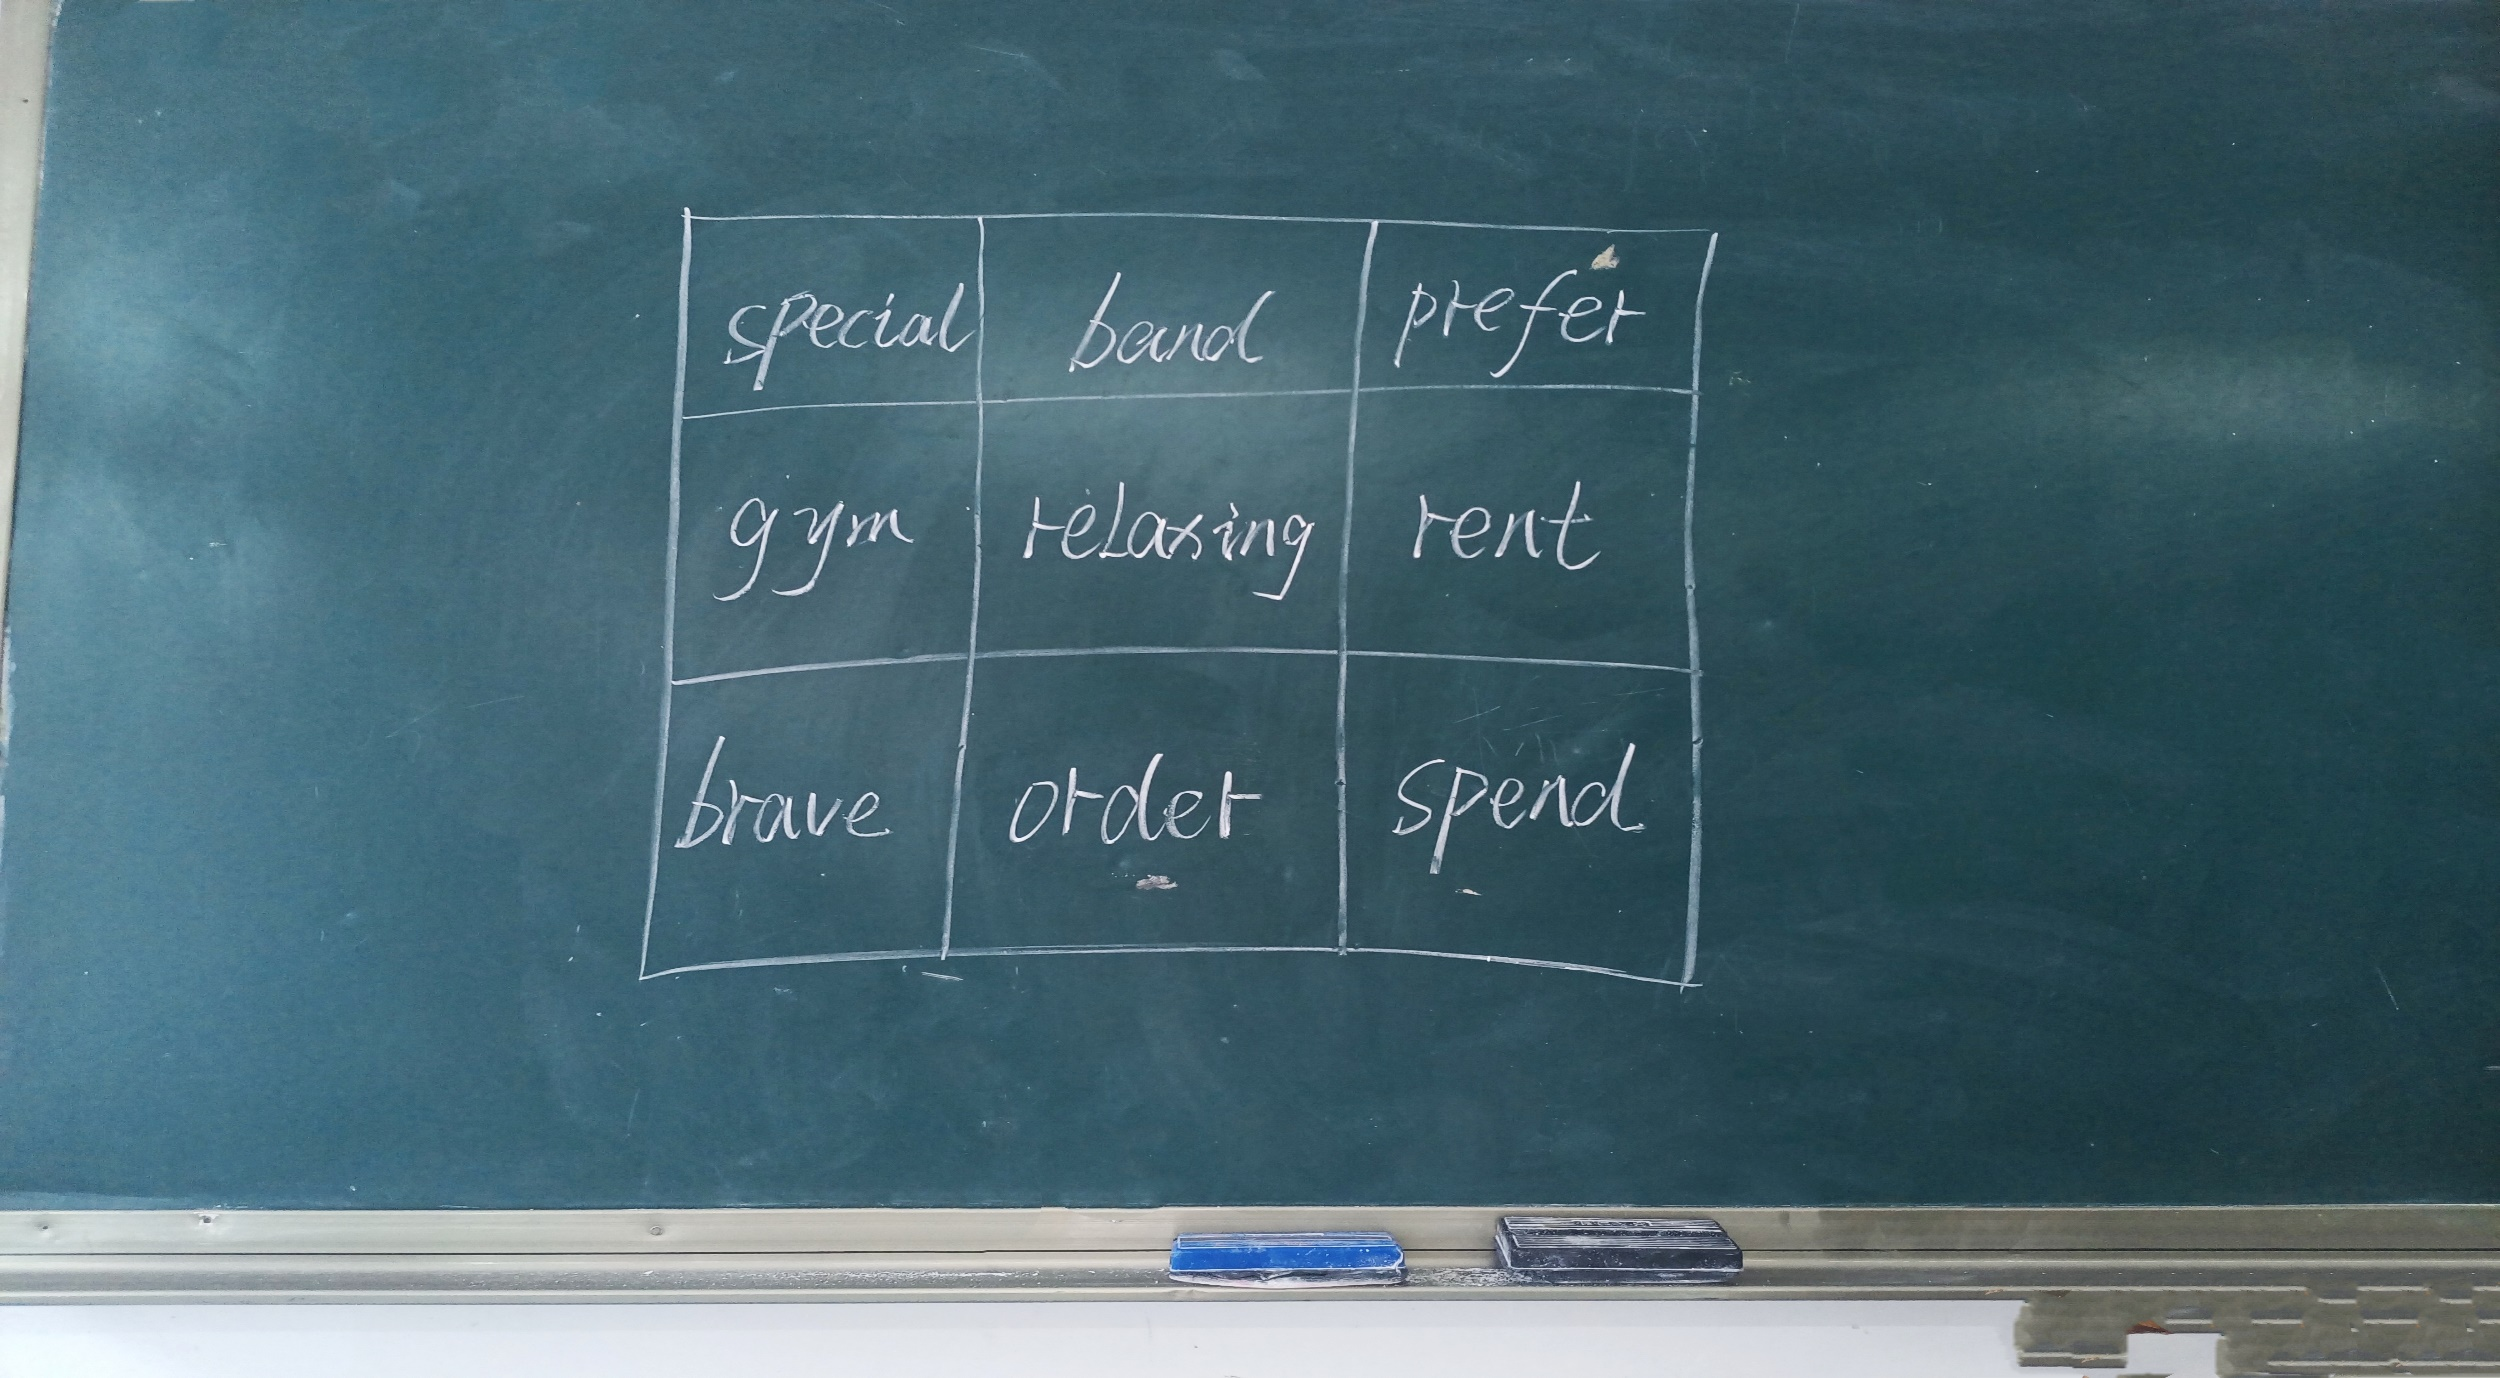 special band prefer
gym relaxing rent
brave order spend